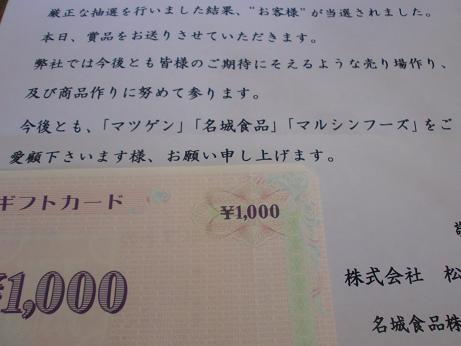 厳正な抽選を行いました結果、"お客様"が当選されました。
本日、賞品をお送りさせていただきます。
弊社では今後とも皆様のご期待にそえるような売り場作り、
及び商品作りに努めて参ります。
今後とも、「マツゲン」「名城食品」「マルシンフーズ」をご
愛顧下さいます様、お願い申し上げます。
ギフトカード
¥1,000
¥1,000
株式会社 松
名城食品株